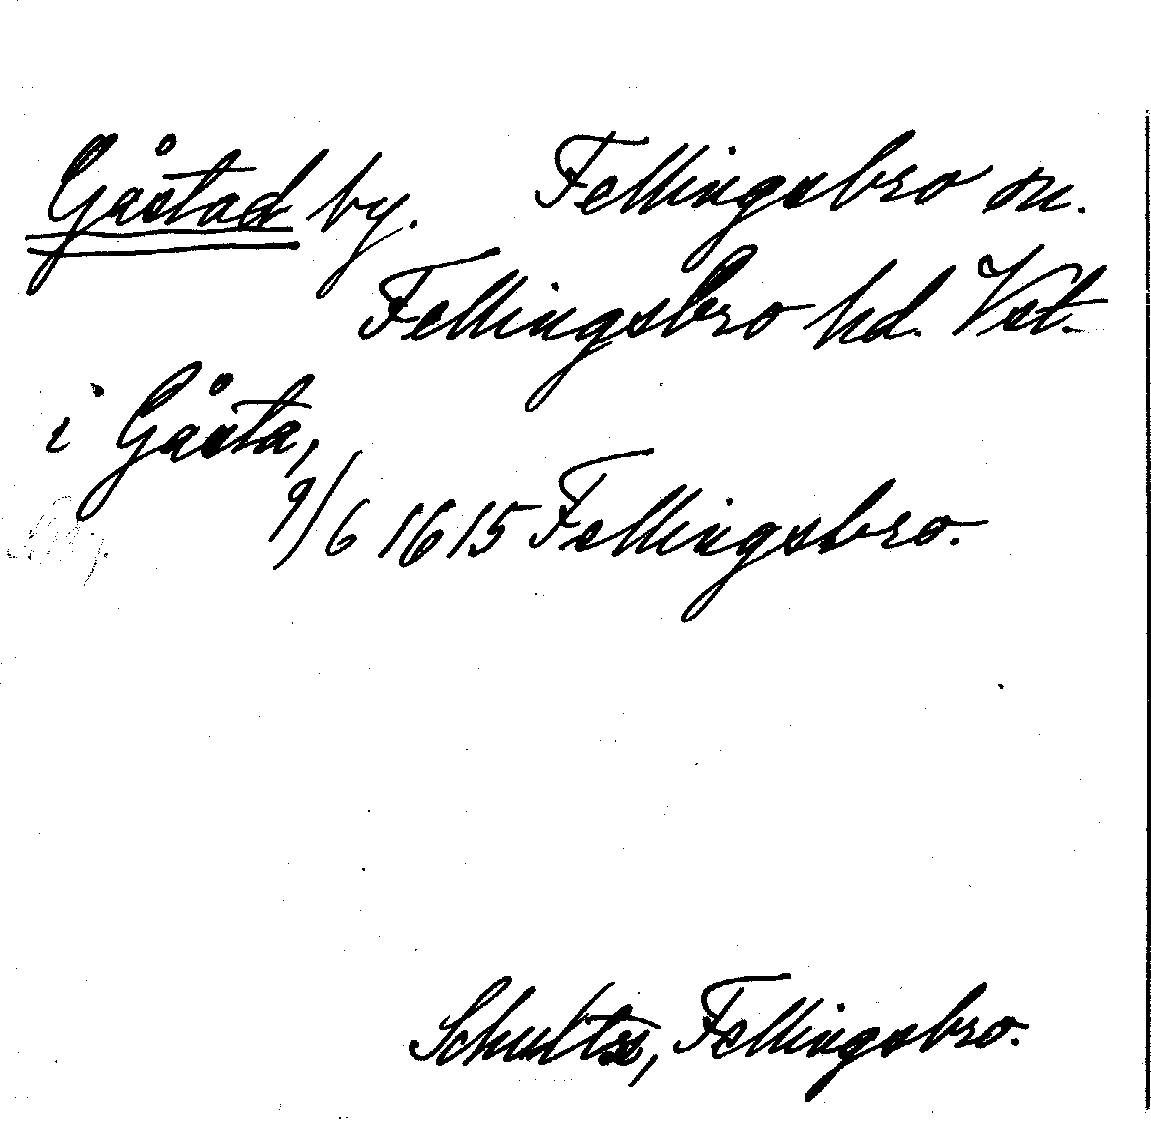 Gåstad by. Fellingsbro sn.
Fellingsbro hd. Vst.
i Gåsta,
9/6 1615 Fellingsbro.
Schultze, Fellingsbro.